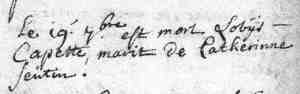 Le 19. 7bre est mort Loÿs
Capette, marit de Catherinne
Sentin.